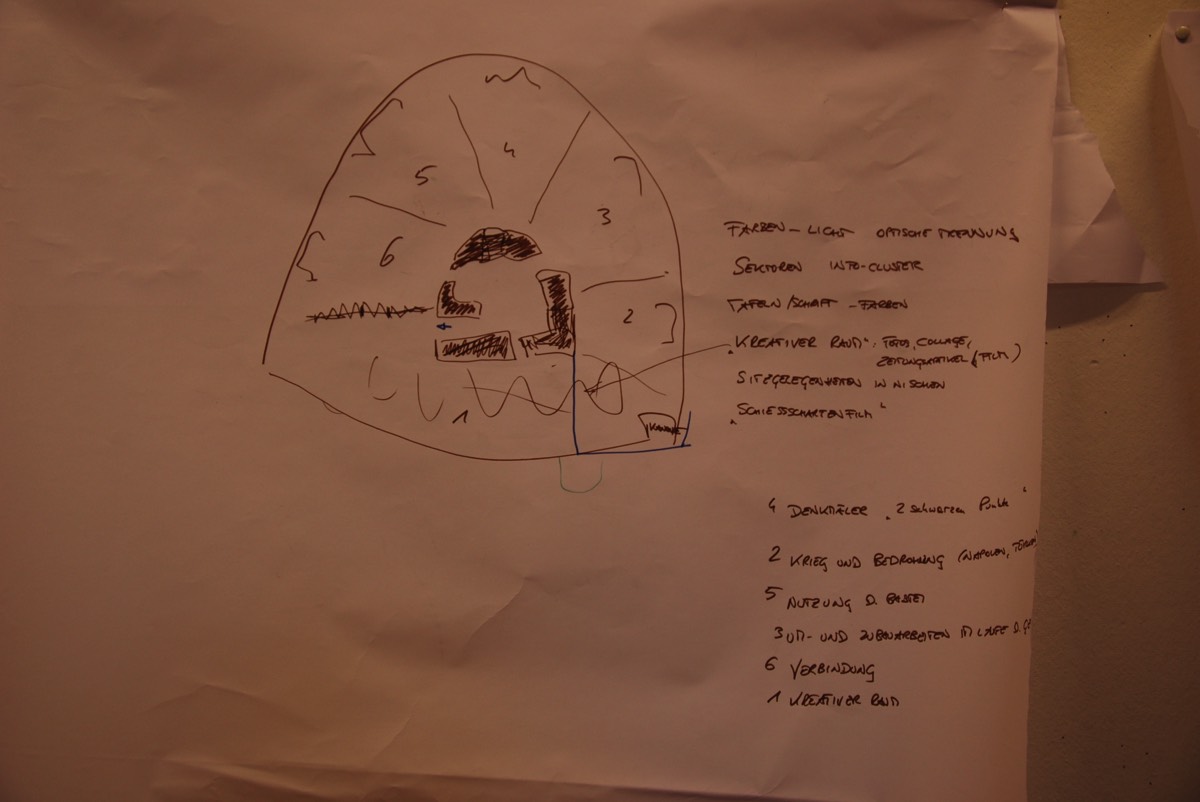 4
5
3
6
2
1
KANONE
FARBEN – LICHT OPTISCHE TRENNUNG
SEKTOREN INFO-CLUSTER
TAFELN/SCHRIFT – FARBEN
„KREATIVER RAUM“: FOTOS, COLLAGE,
ZEITUNGSARTIKEL (FILM)
SITZGELEGENHEITEN IN NISCHEN
„SCHIESSSCHARTENFILM“
4 DENKMÄLER „2 schwarze Punkte“
2 KRIEG UND BEDROHUNG (NAPOLEON,
5 NUTZUNG D. BASTEI
3 UM- UND ZUBAUARBEITEN IM LAUFE D.
6 VERBINDUNG
1 KREATIVER RAUM